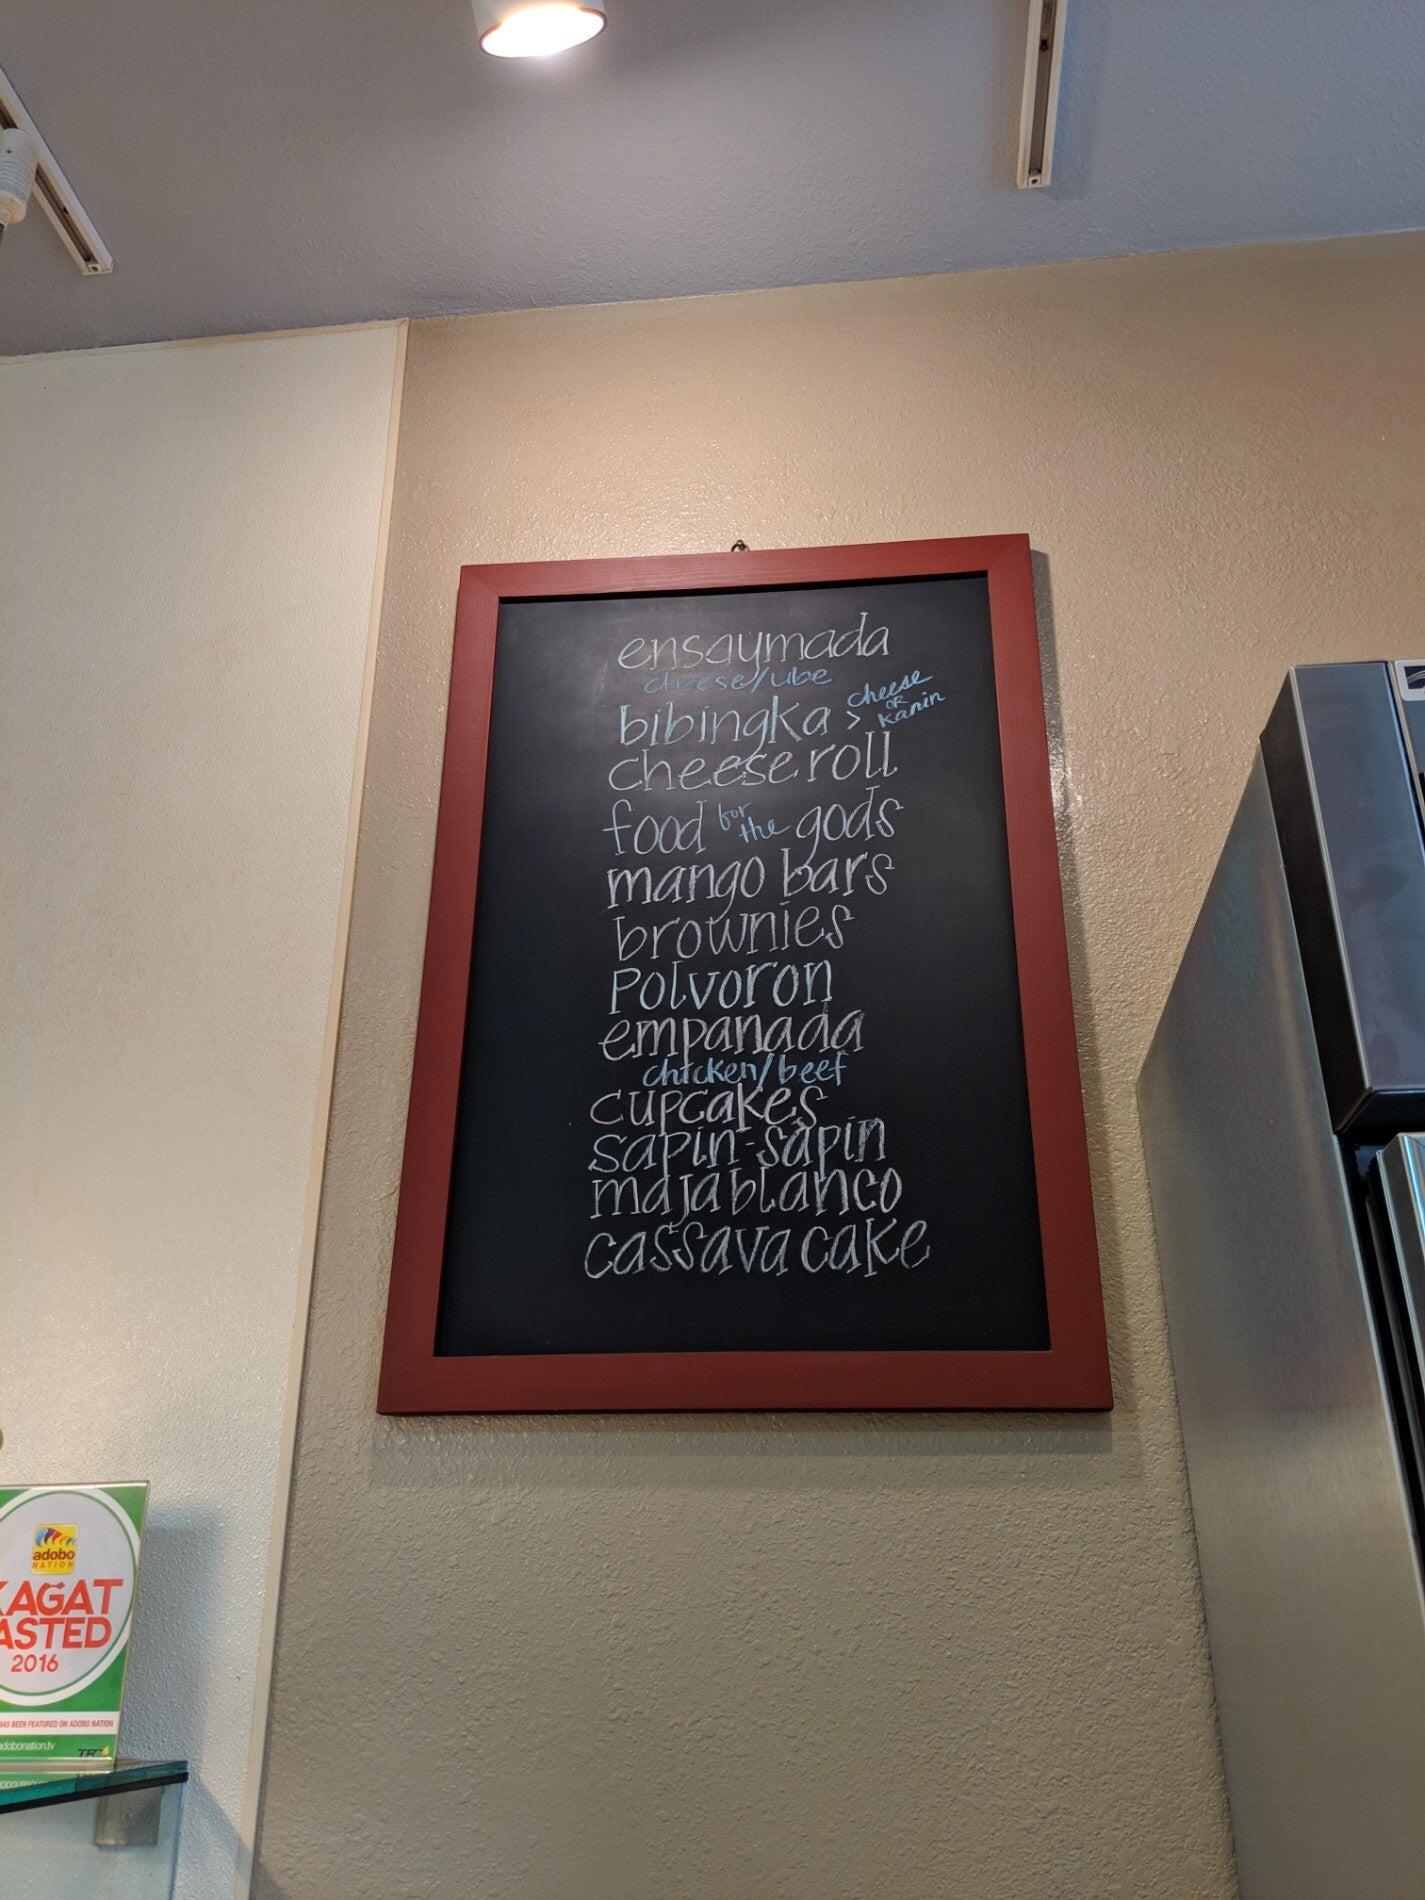 ensaymada
cheese/ube
bibingka > cheese
OR
kanin
cheese roll
food for the gods
mango bars
brownies
Polvoron
empanada
chicken/beef
cupcakes
sapin-sapin
maja blanco
cassava cake
adobo
NATION
KAGAT
ASTED
2016
HAS BEEN FEATURED ON ADOBO NATION
adobonation.tv
TFC